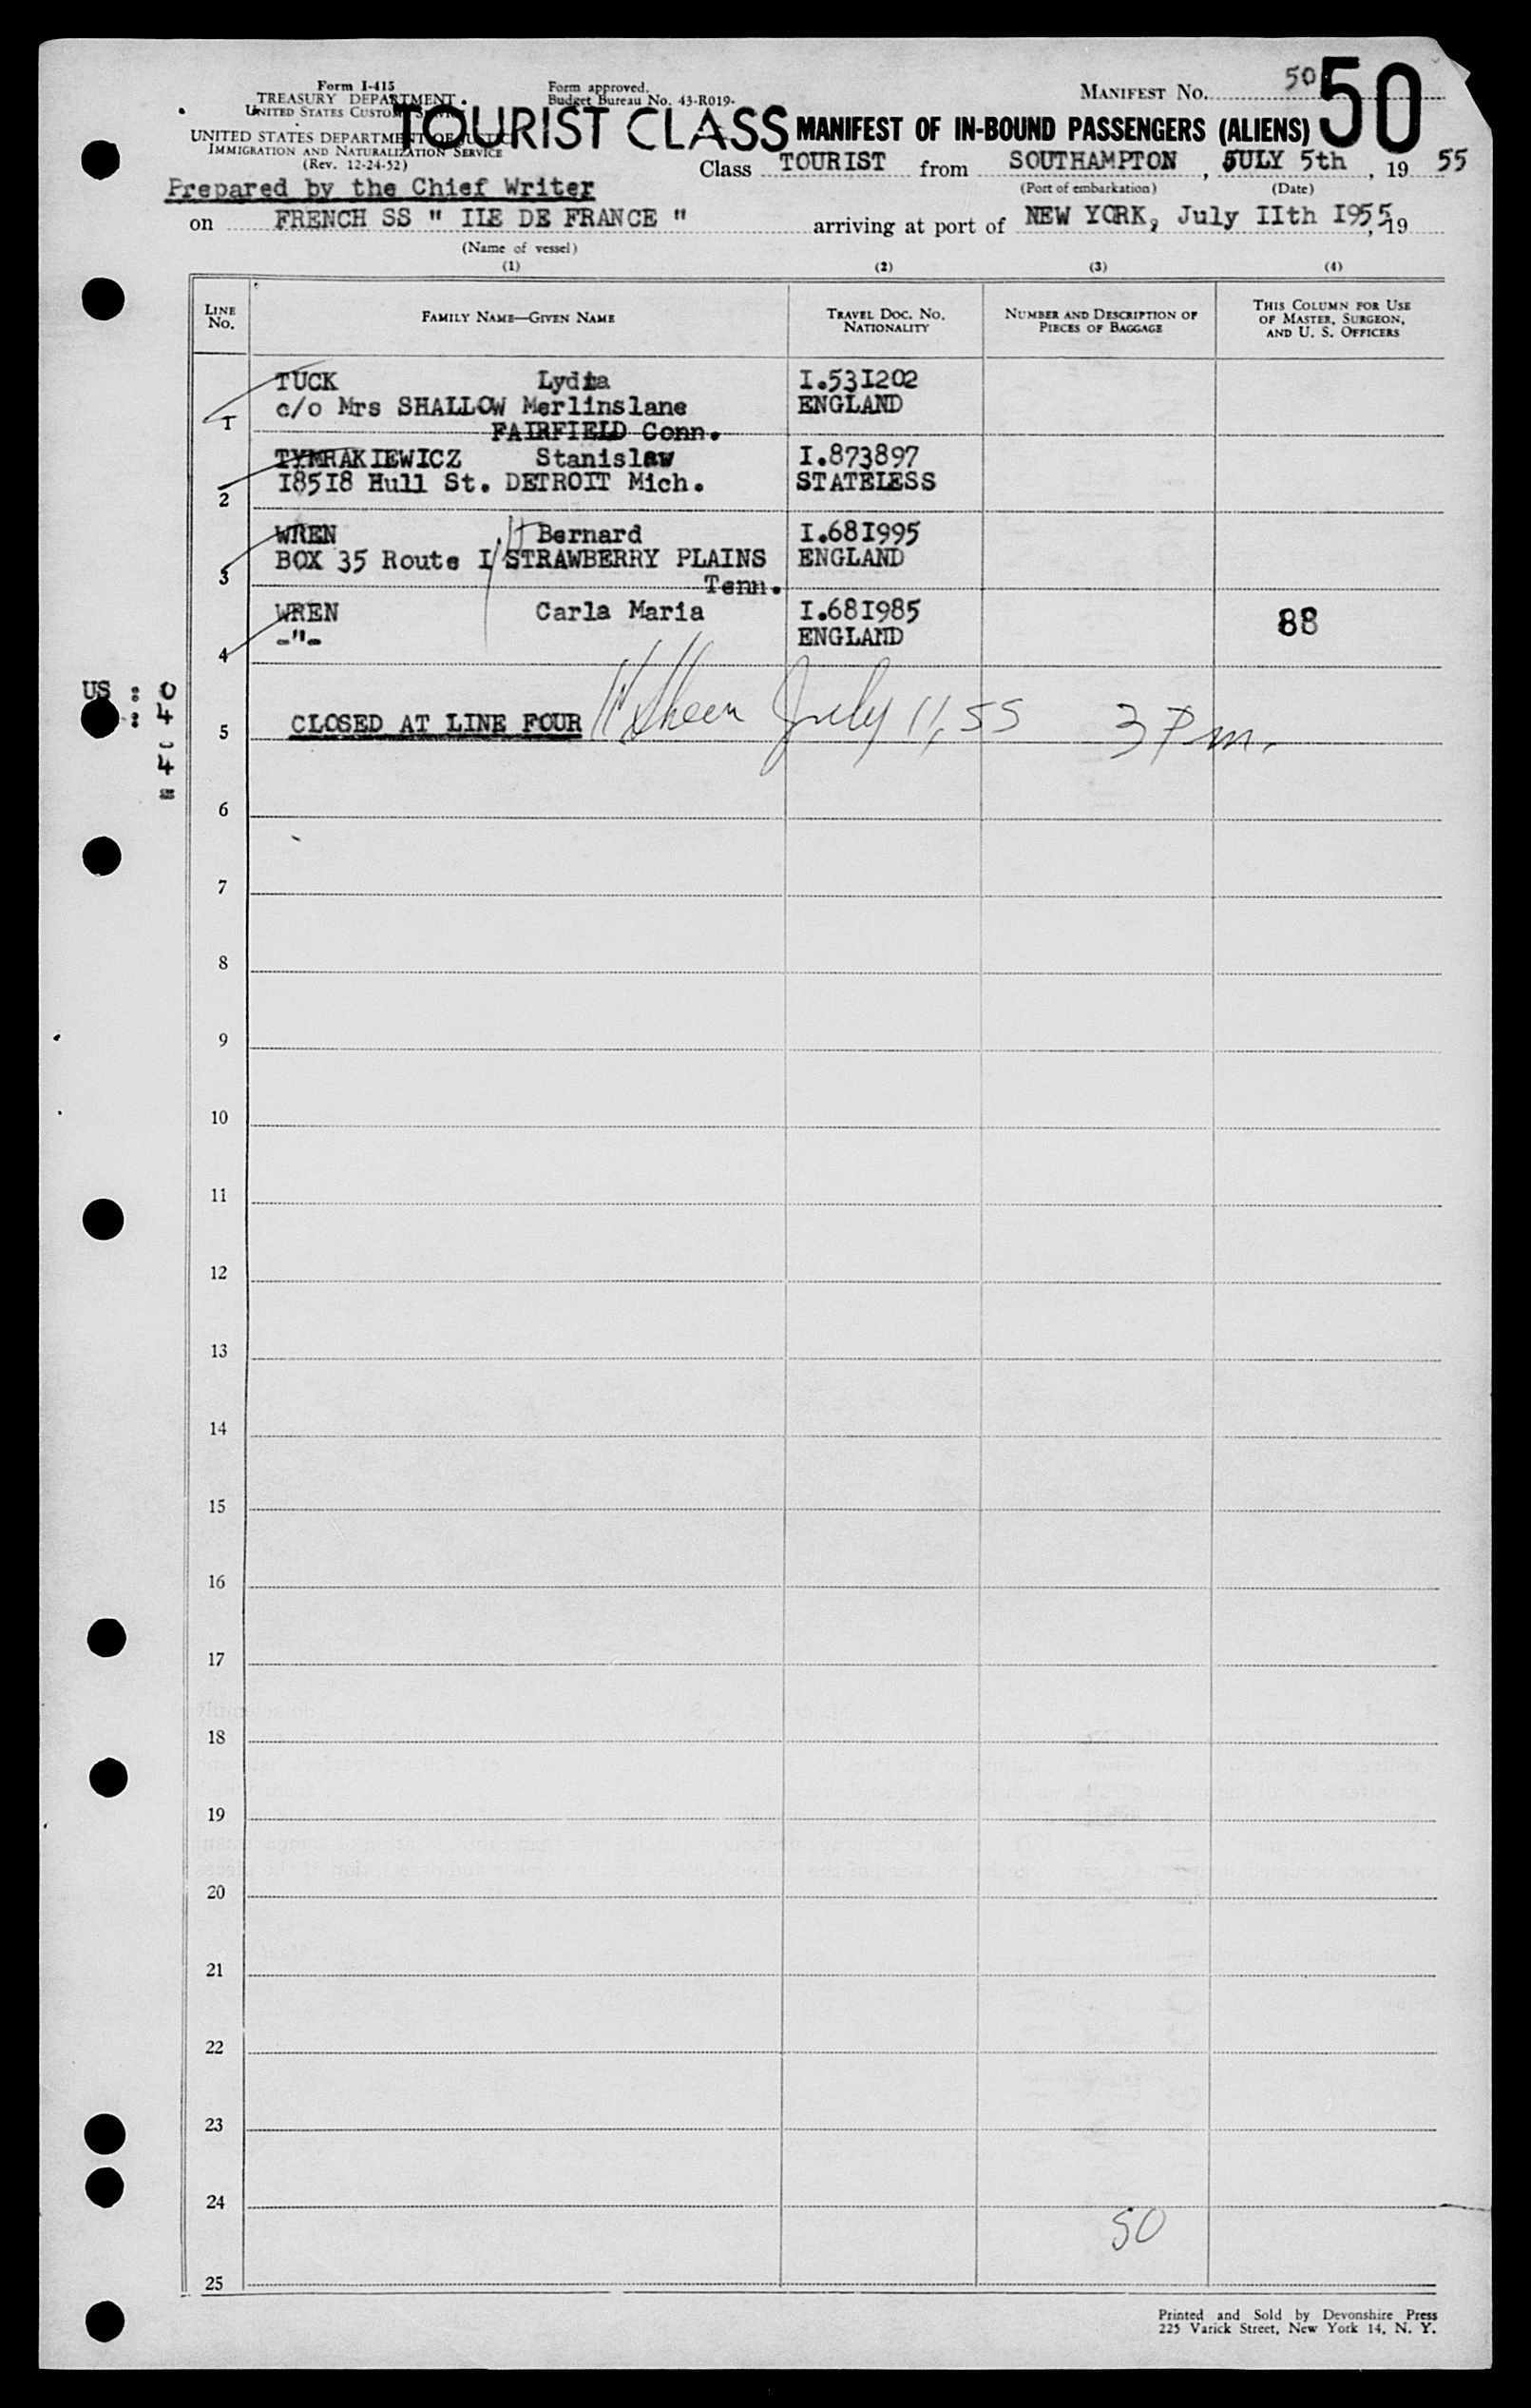 Form I-415
TREASURY DEPARTMENT
UNITED STATES CUSTOMS SERVICE
UNITED STATES DEPARTMENT OF JUSTICE
IMMIGRATION AND NATURALIZATION SERVICE
(Rev. 12-24-52)
Form approved.
Budget Bureau No. 43-R019-
MANIFEST No. 50
50
TOURIST CLASS MANIFEST OF IN-BOUND PASSENGERS (ALIENS)
Class TOURIST from SOUTHAMPTON, JULY 5th, 19 55
(Port of embarkation) (Date)
Prepared by the Chief Writer
on FRENCH SS " ILE DE FRANCE " arriving at port of NEW YORK, July IIth I955, 19
(Name of vessel)
(1) (2) (3) (4)
LINE No. FAMILY NAME—GIVEN NAME TRAVEL DOC. No. NATIONALITY NUMBER AND DESCRIPTION OF PIECES OF BAGGAGE THIS COLUMN FOR USE OF MASTER, SURGEON, AND U. S. OFFICERS
TUCK Lydia I.53I202
1 c/o Mrs SHALLOW Merlinslane ENGLAND
FAIRFIELD Conn.
TYMRAKIEWICZ Stanislaw I.873897
2 I85I8 Hull St. DETROIT Mich. STATELESS
WREN Bernard I.68I995
3 BOX 35 Route I STRAWBERRY PLAINS ENGLAND
Tenn.
WREN Carla Maria I.68I985
4 -"- ENGLAND 88
US : 0
: 4
= 4
5 CLOSED AT LINE FOUR July 11, 55 3 Pm.
6
7
8
9
10
11
12
13
14
15
16
17
18
19
20
21
22
23
24
50
25
Printed and Sold by Devonshire Press
225 Varick Street, New York 14, N. Y.